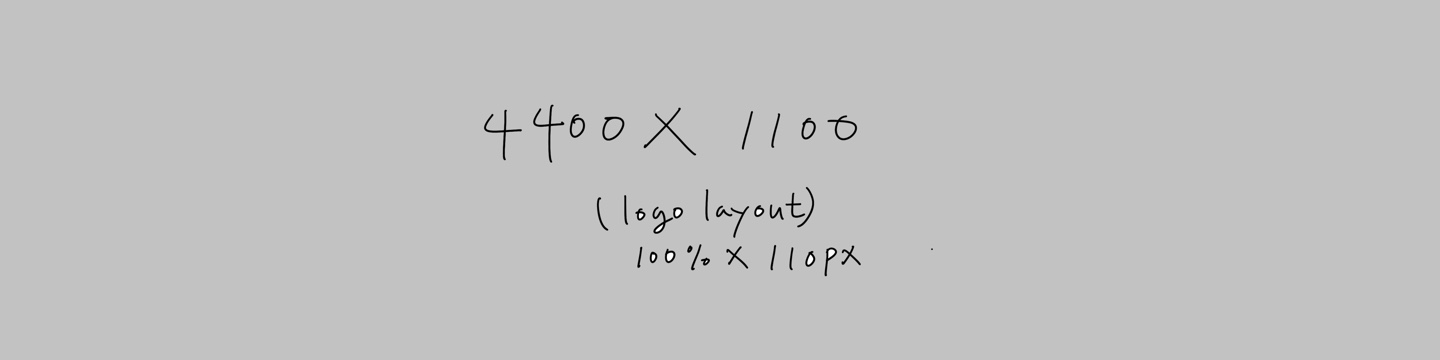 4400 X 1100
(logo layout)
100% X 110px